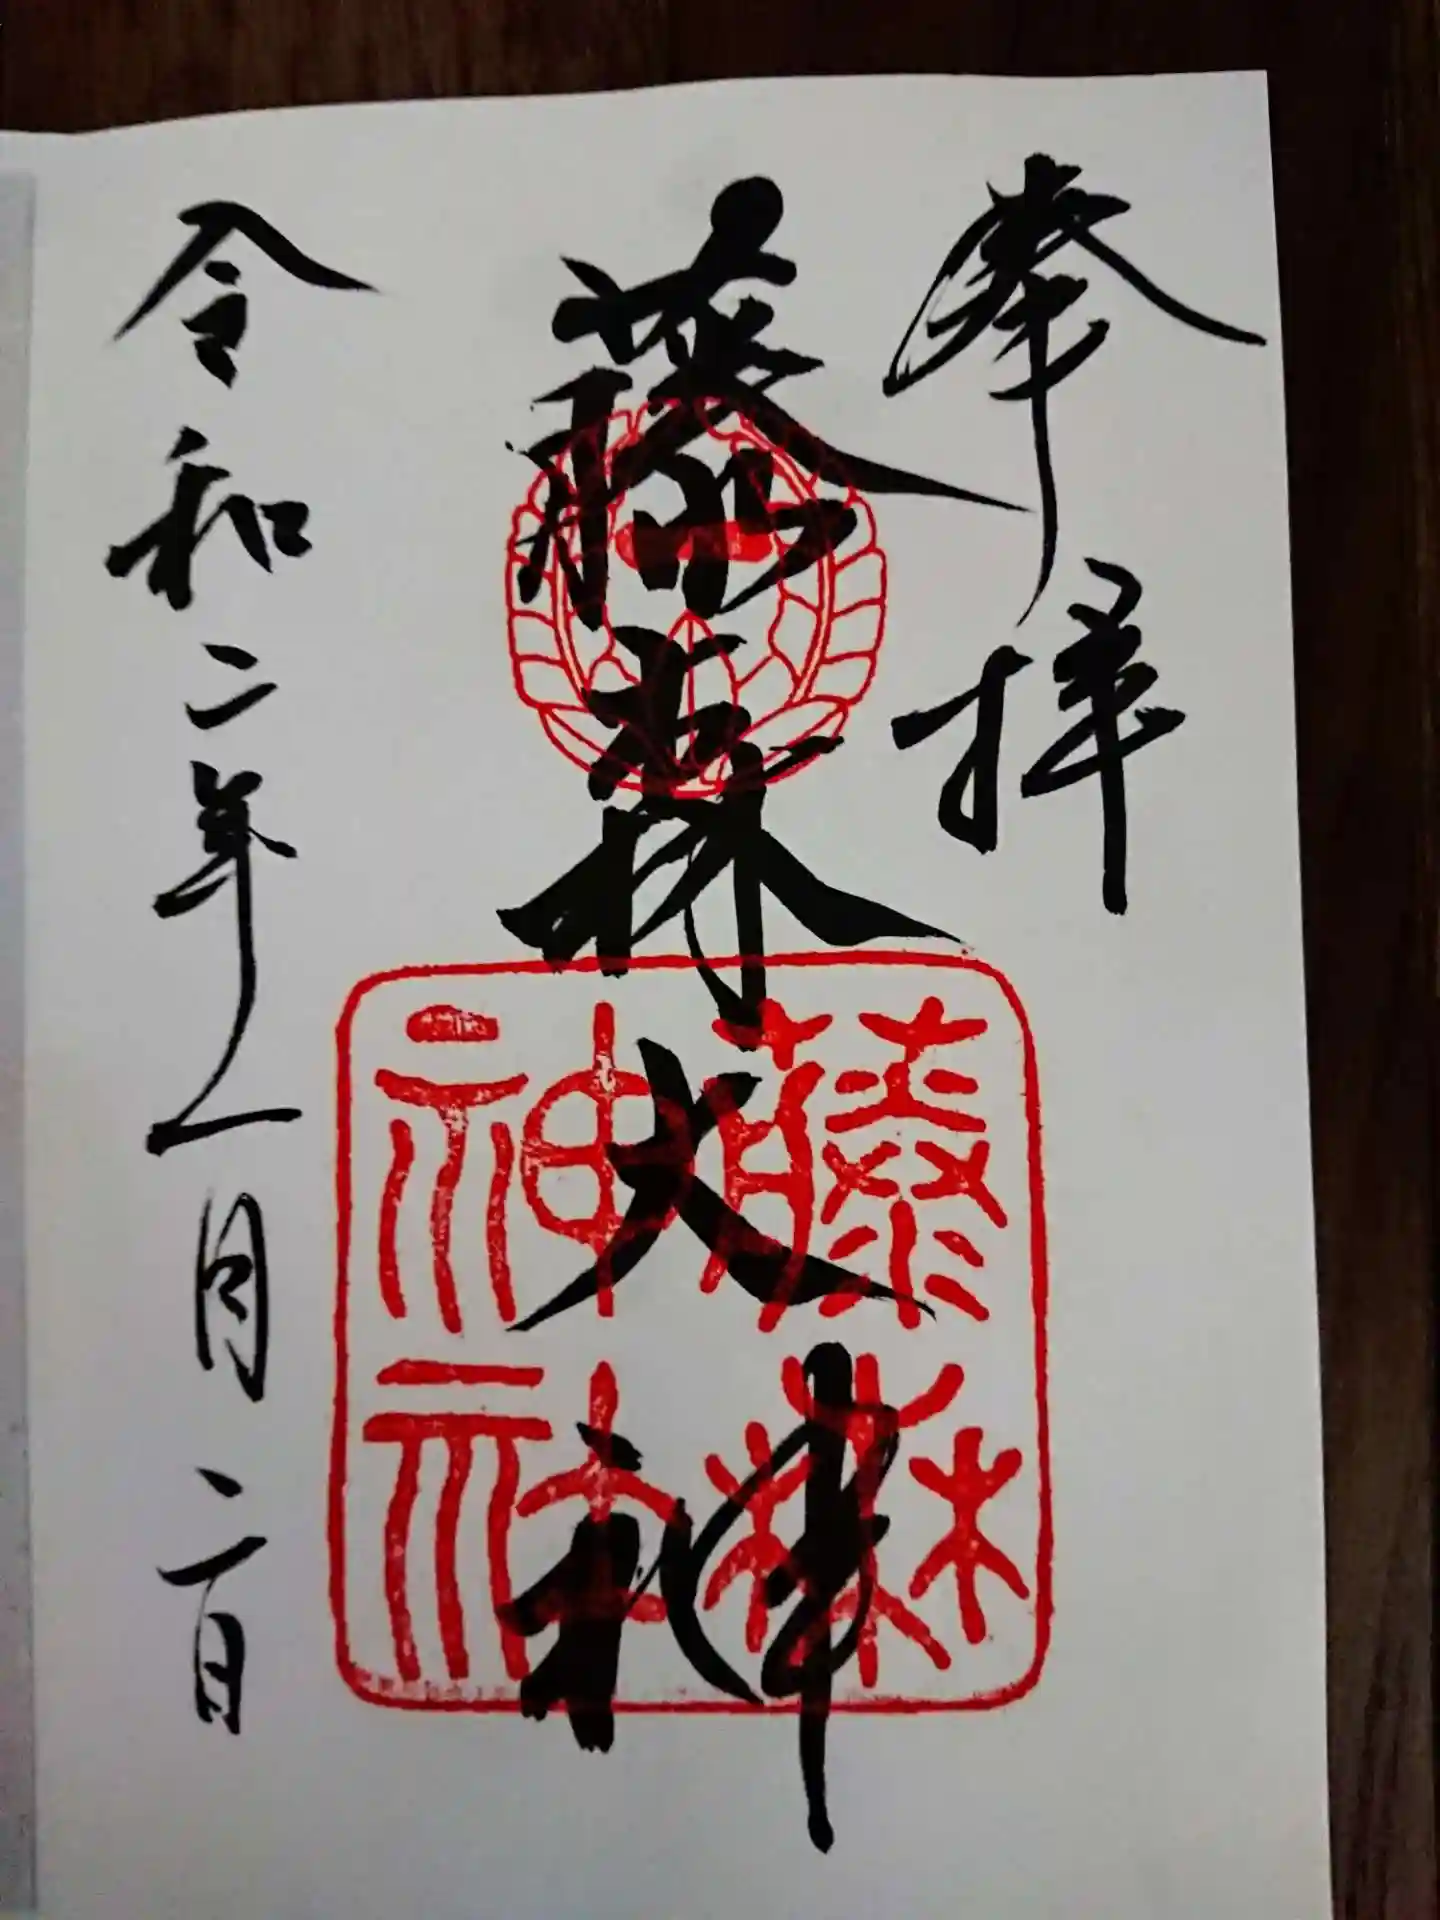 奉拝
藤森大神
藤森
神社
令和二年一月二日